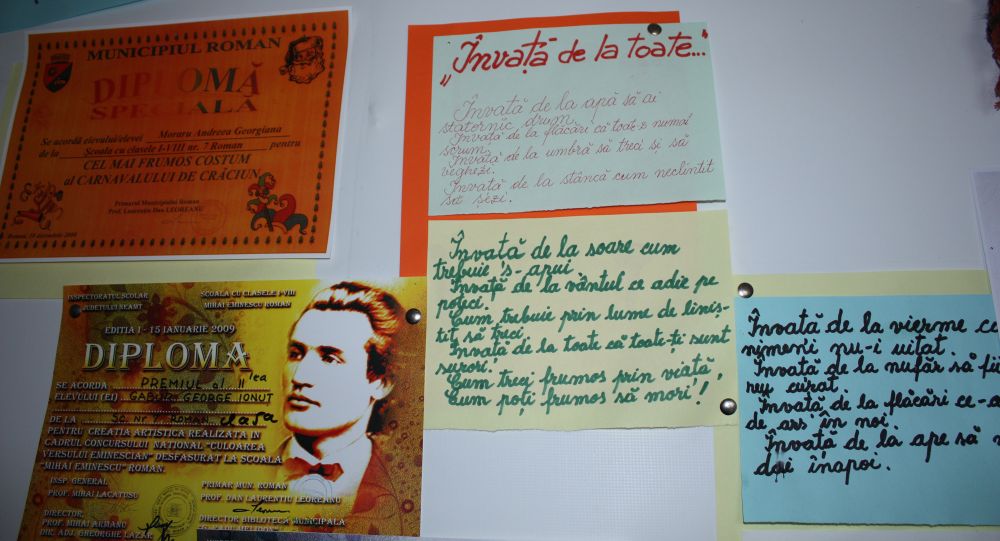 MUNICIPIUL ROMAN
DIPLOMĂ
SPECIALĂ
Se acordă elevului/elevei Moraru Andreea Georgiana
de la Școala cu clasele I-VIII nr. 7 Roman pentru
CEL MAI FRUMOS COSTUM
al CARNAVALULUI DE CRĂCIUN
Primarul Municipiului Roman
Prof. Laurențiu Dan LEOREANU
Roman, 19 decembrie 2008
INSPECTORATUL SCOLAR
JUDETULUI NEAMT
SCOALA CU CLASELE I-VIII
MIHAI EMINESCU ROMAN
EDITIA I - 15 IANUARIE 2009
DIPLOMA
SE ACORDA PREMIUL al II lea
ELEVULUI (EI) GABOR GEORGE IONUT
DE LA SC. NR. 7 ROMAN
PENTRU CREATIA ARTISTICA REALIZATA IN
CADRUL CONCURSULUI NATIONAL "CULOAREA
VERSULUI EMINESCIAN" DESFASURAT LA SCOALA
"MIHAI EMINESCU" ROMAN.
INSP. GENERAL
PROF. MIHAI LACATUSU
PRIMAR MUN. ROMAN
PROF. DAN LAURENTIU LEOREANU
DIRECTOR,
PROF. MIHAI ARMANU
DIR. ADJ. GHEORGHE LAZAR
DIRECTOR BIBLIOTECA MUNICIPALA
„Învață de la toate..."
Învată de la apă să ai
statornic drum.
Învată de la flăcări că toate-s numai
scrum.
Învată de la umbră să treci și să
veghezi.
Învată de la stâncă cum neclintit
set șezi.
Învață de la soare cum
trebuie s-apui
Învață de la vântul ce adie pe
poteci.
Cum trebuie prin lume de liniș-
tit să treci
Învată de la toate că toate-ți sunt
surori.
Cum treci frumos prin viață,
Cum poți frumos să mori!
Învată de la vierme că
nimeni nu-i uitat.
Învată de la nufăr să fii
reu curat.
Învată de la flăcări ce-a
de ars în noi.
Învată de la ape să n
dai înapoi.